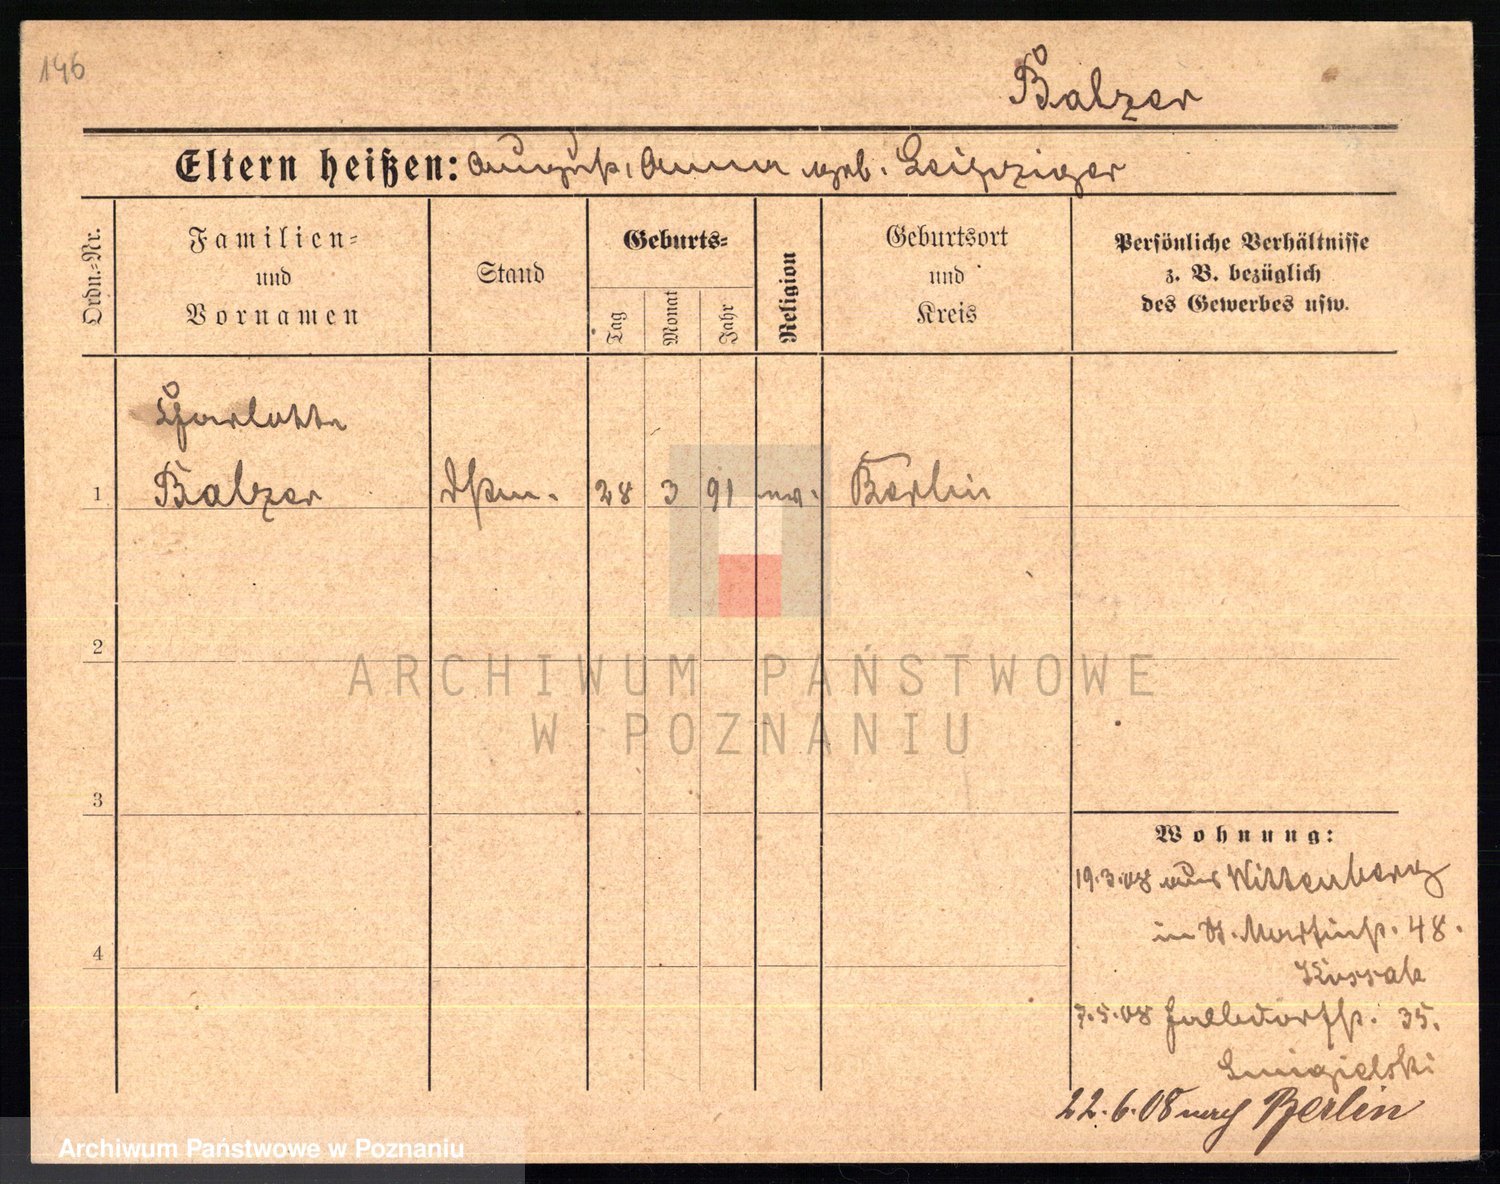 146
Balzer
Eltern heißen: August, Anna geb. Leipziger
Ordn.-Nr.
Familien-
und
Vornamen
Stand
Geburts-
Tag
Monat
Jahr
Religion
Geburtsort
und
Kreis
Persönliche Verhältnisse
z. B. bezüglich
des Gewerbes usw.
Charlotte
1 Balzer 28 3 91 ev. Berlin
2
ARCHIWUM PAŃSTWOWE
W POZNANIU
3
Wohnung:
19.3.08 aus Wittenberg
in St. Martinst. 48.
Kossak
4
7.5.08 35.
Smigielski
22.6.08 nach Berlin
Archiwum Państwowe w Poznaniu